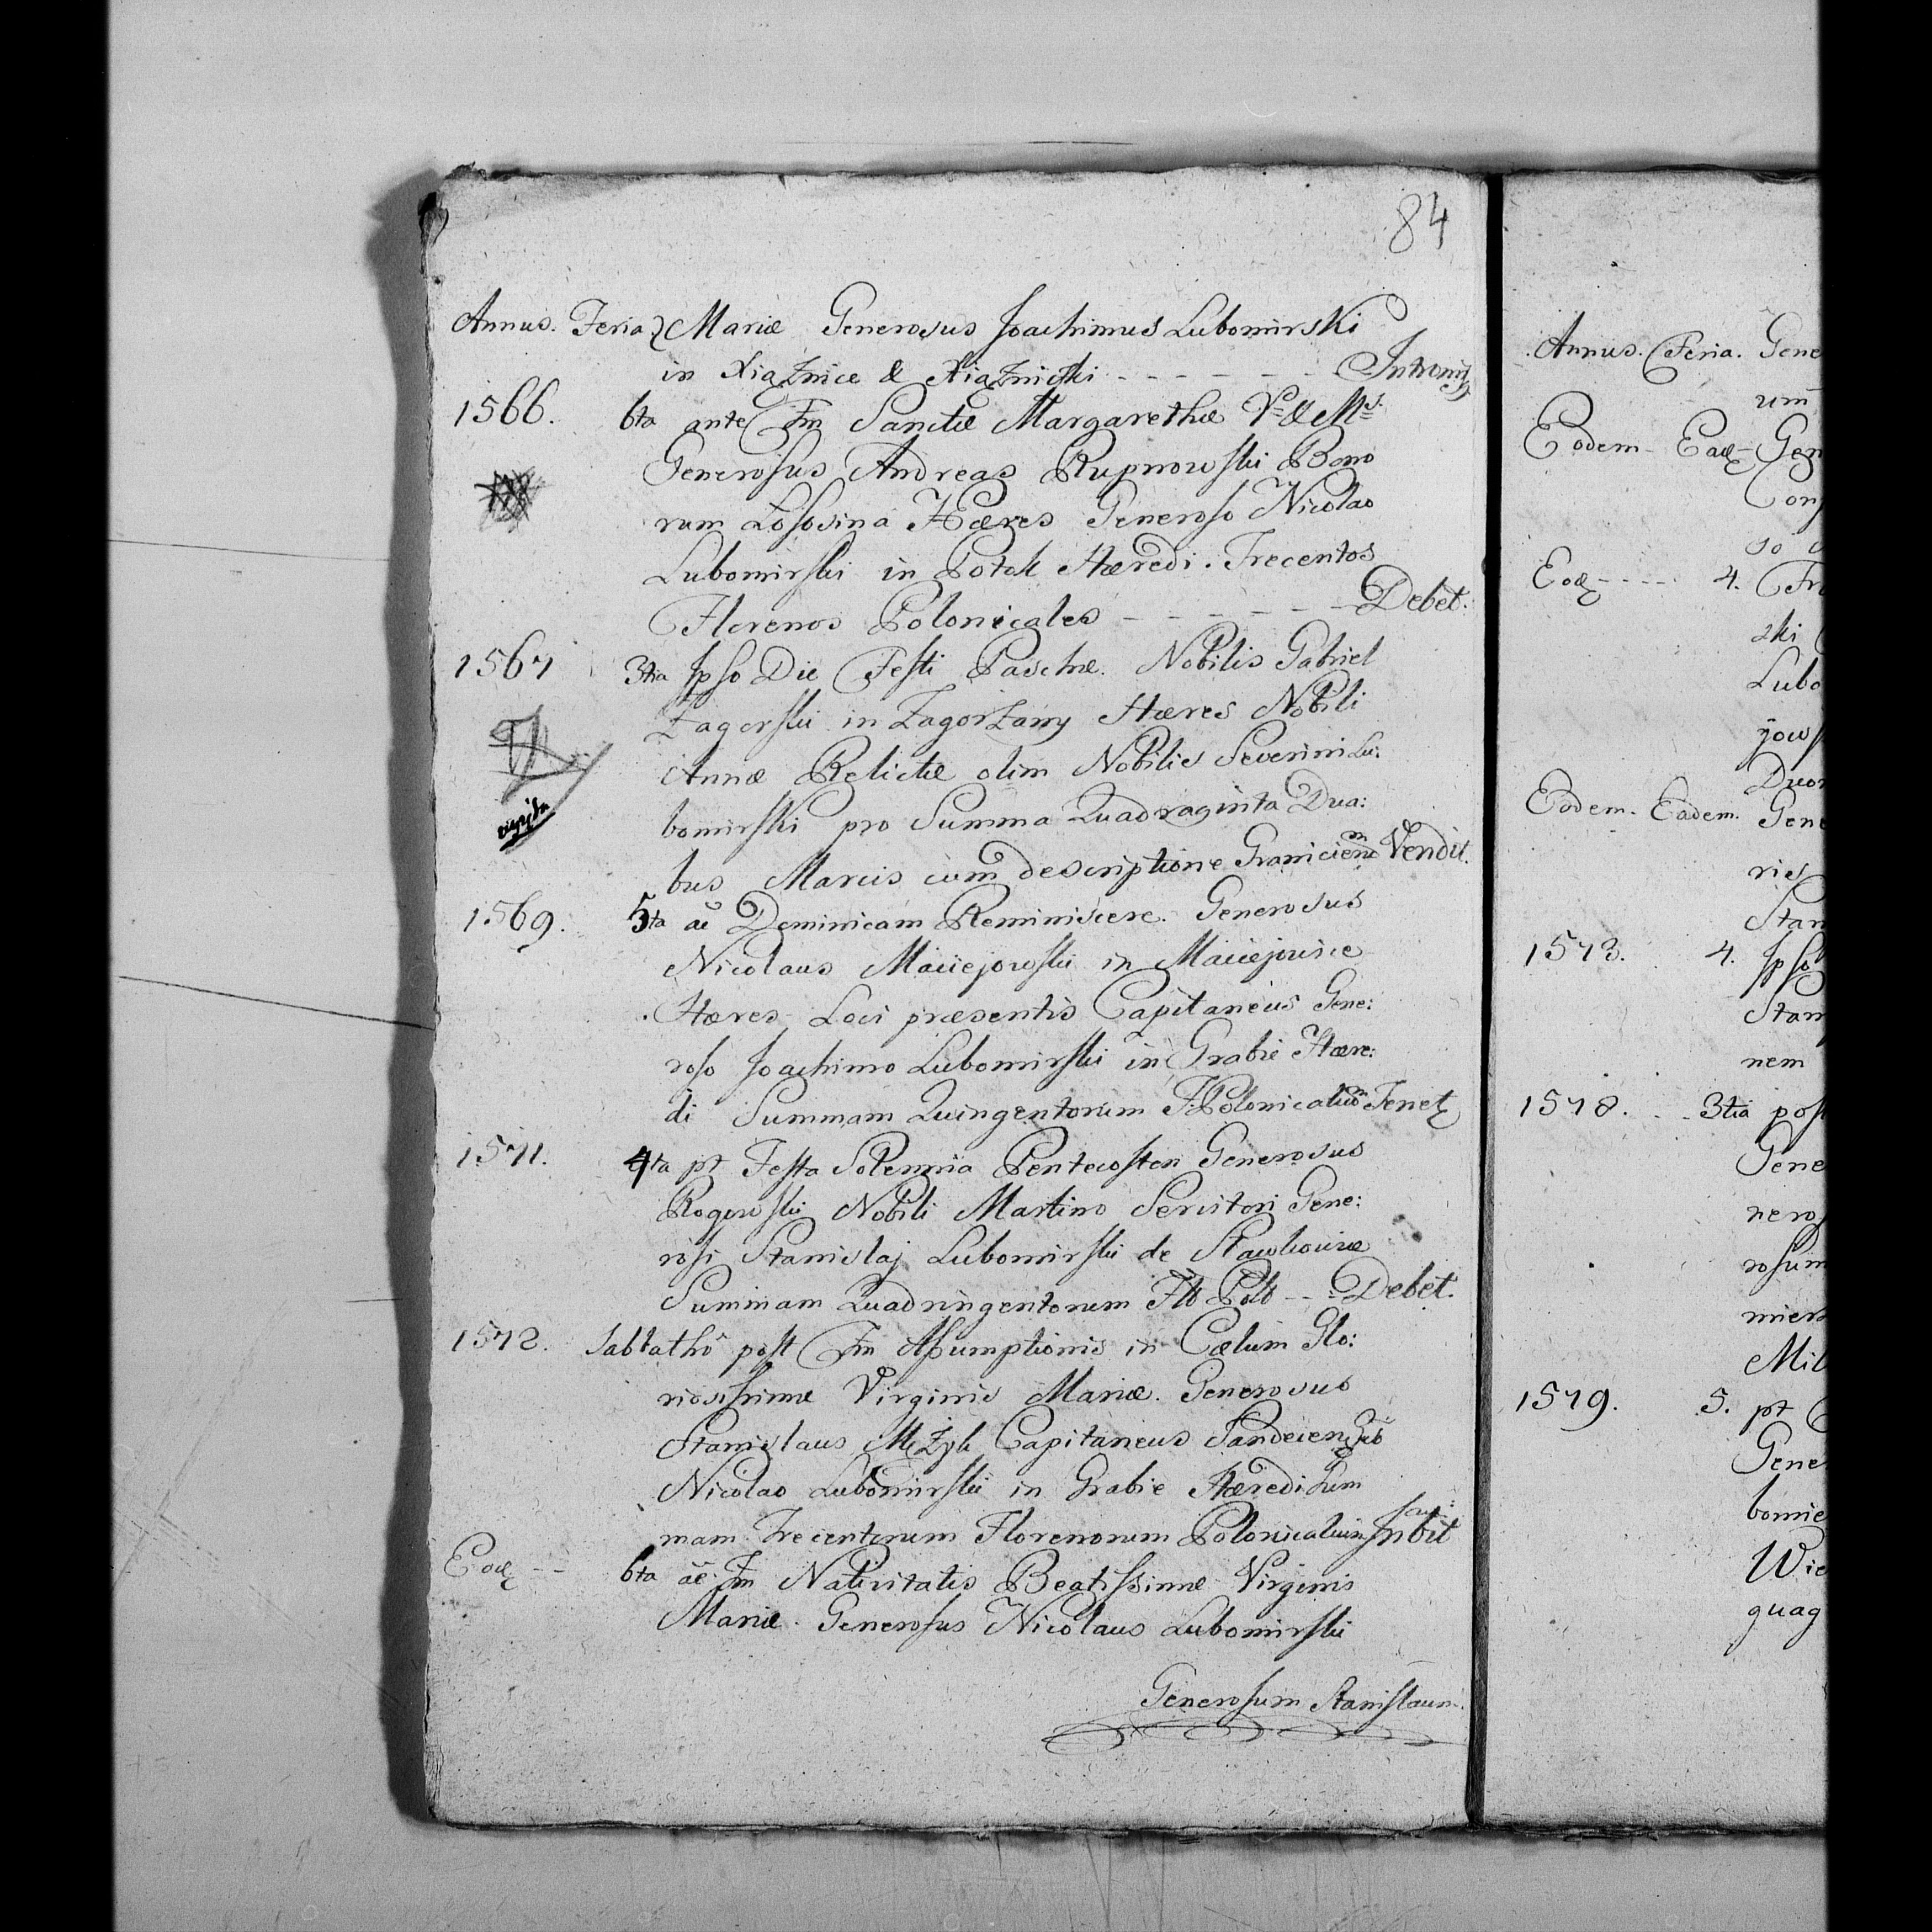 84
Annus. Feria Mariæ Generosus Joachimus Lubomirski
in Xiąznice & Xiąznicski - - - - - - Intromit
1566. 6ta ante Fm Sanctæ Margarethæ V. & M.
Generosus Andreas Rupnowski Bono
rum Łososina Hæres Generoso Nicolao
Lubomirski in Potok Hæredi. Trecentos
Florenos Polonicales - - - - - - Debet.
1567 3tia Ipso Die Festi Paschæ. Nobilis Gabriel
Zagorski in Zagorzany Hæres Nobili
Annæ Relictæ olim Nobilis Severini Lu:
bomirski pro Summa Quadraginta Dua:
bus Marcis cum descriptione Granicierum Vendit.
1569. 5ta ae Dominicam Reminiscere. Generosus
Nicolaus Maciejowski in Maciejowice
Hæres Loci præsentis Capitaneus Gene:
roso Joachimo Lubomirski in Grabie Hære:
di Summam Quingentorum F. Polonicaliu Tenet
1571. 4ta pt Festa Solennia Pentecosten Generosus
Rogowski Nobili Martino Servitori Gene:
rosi Stanislaj Lubomirski de Sławkowice
Summam Quadringentorum Flo Polo - - - Debet.
1572. Sabbatho post Fm Assumptionis in Cælum Glo:
riosissimæ Virginis Mariæ. Generosus
Stanislaus Mężyk Capitaneus Sandecensis
Nicolao Lubomirski in Grabie Hæredi Sum
mam Trecentorum Florenorum Polonicalium Inscribit
Eod - - 6ta ae. Fm Nativitatis Beatissimæ Virginis
Mariæ. Generosus Nicolaus Lubomirski
Generosum Stanislaum.
Annus. Feria. Gene
um
Eodem - Ead - Gen
Con
so
Eod - - - - 4. Fr
ski
Lubo
jows
Duor
Eodem. Eadem. Gene
ries
Stan
1573. 4. Ipso
Stan
nem
1578. 3tia post
Gene
neros
rosum
miers
Mil
1579. 5. pt
Gene
bomie
Wie
quag